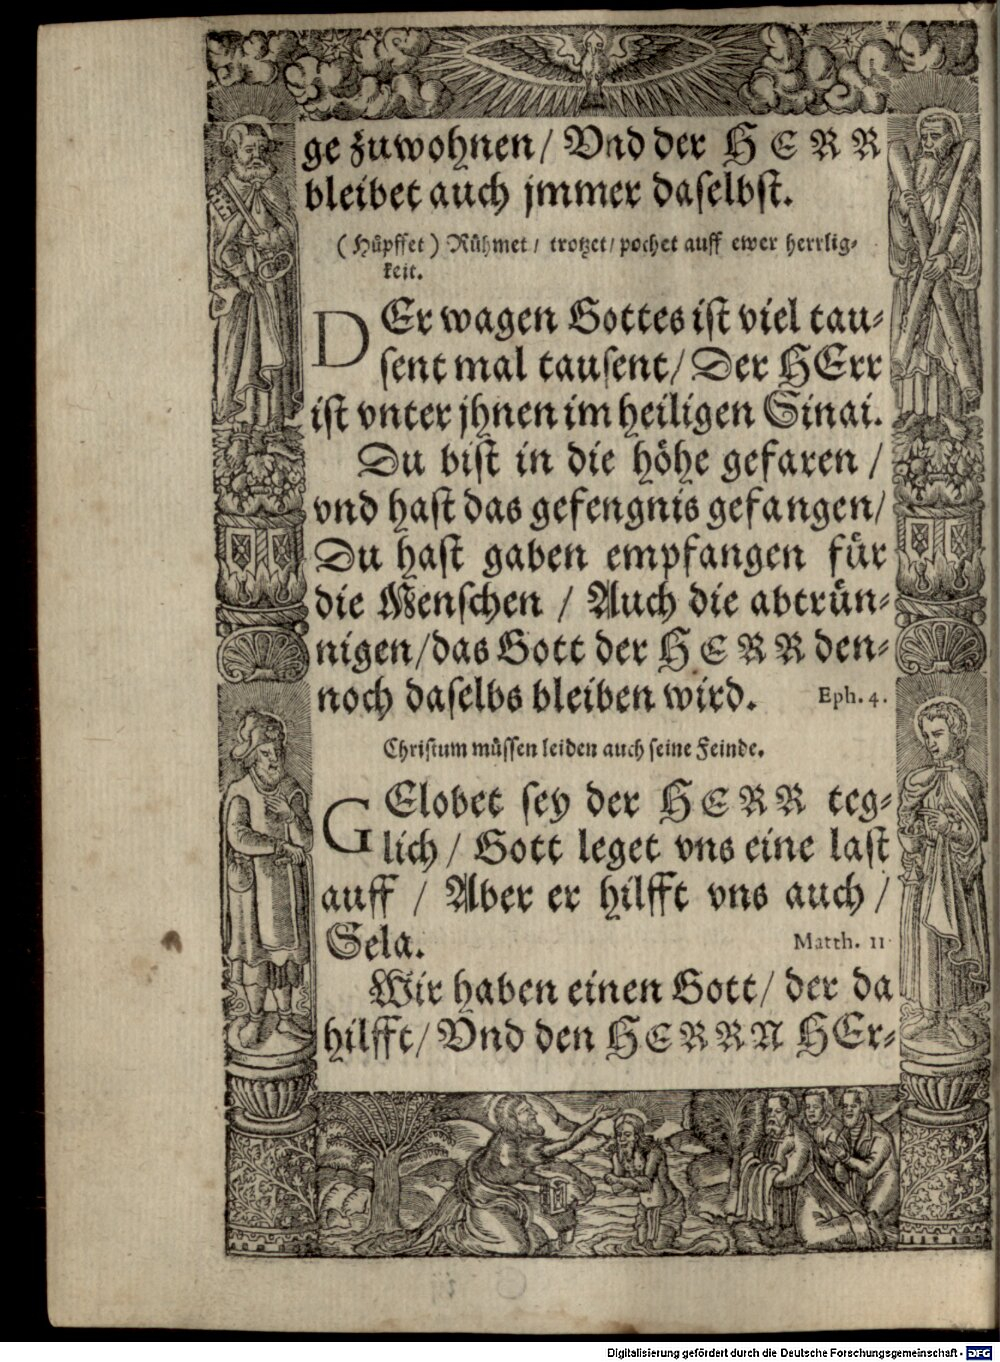 ge zuwohnen/ Vnd der HERR
bleibet auch jmmer daselbst.
(Hüpffet) Rühmet/ trotzet/ pochet auff ewer herrlig-
keit.
DEr wagen Gottes ist viel tau-
sent mal tausent/ Der HErr
ist vnter jhnen im heiligen Sinai.
Du bist in die höhe gefaren /
vnd hast das gefengnis gefangen/
Du hast gaben empfangen für
die Menschen / Auch die abtrün-
nigen/ das Gott der HERR den-
noch daselbs bleiben wird. Eph. 4.
Christum müssen leiden auch seine Feinde.
GElobet sey der HERR teg-
lich/ Gott leget vns eine last
auff / Aber er hilfft vns auch /
Sela. Matth. 11
Wir haben einen Gott/ der da
hilfft/ Vnd den HERRN HEr-
Digitalisierung gefördert durch die Deutsche Forschungsgemeinschaft - DFG